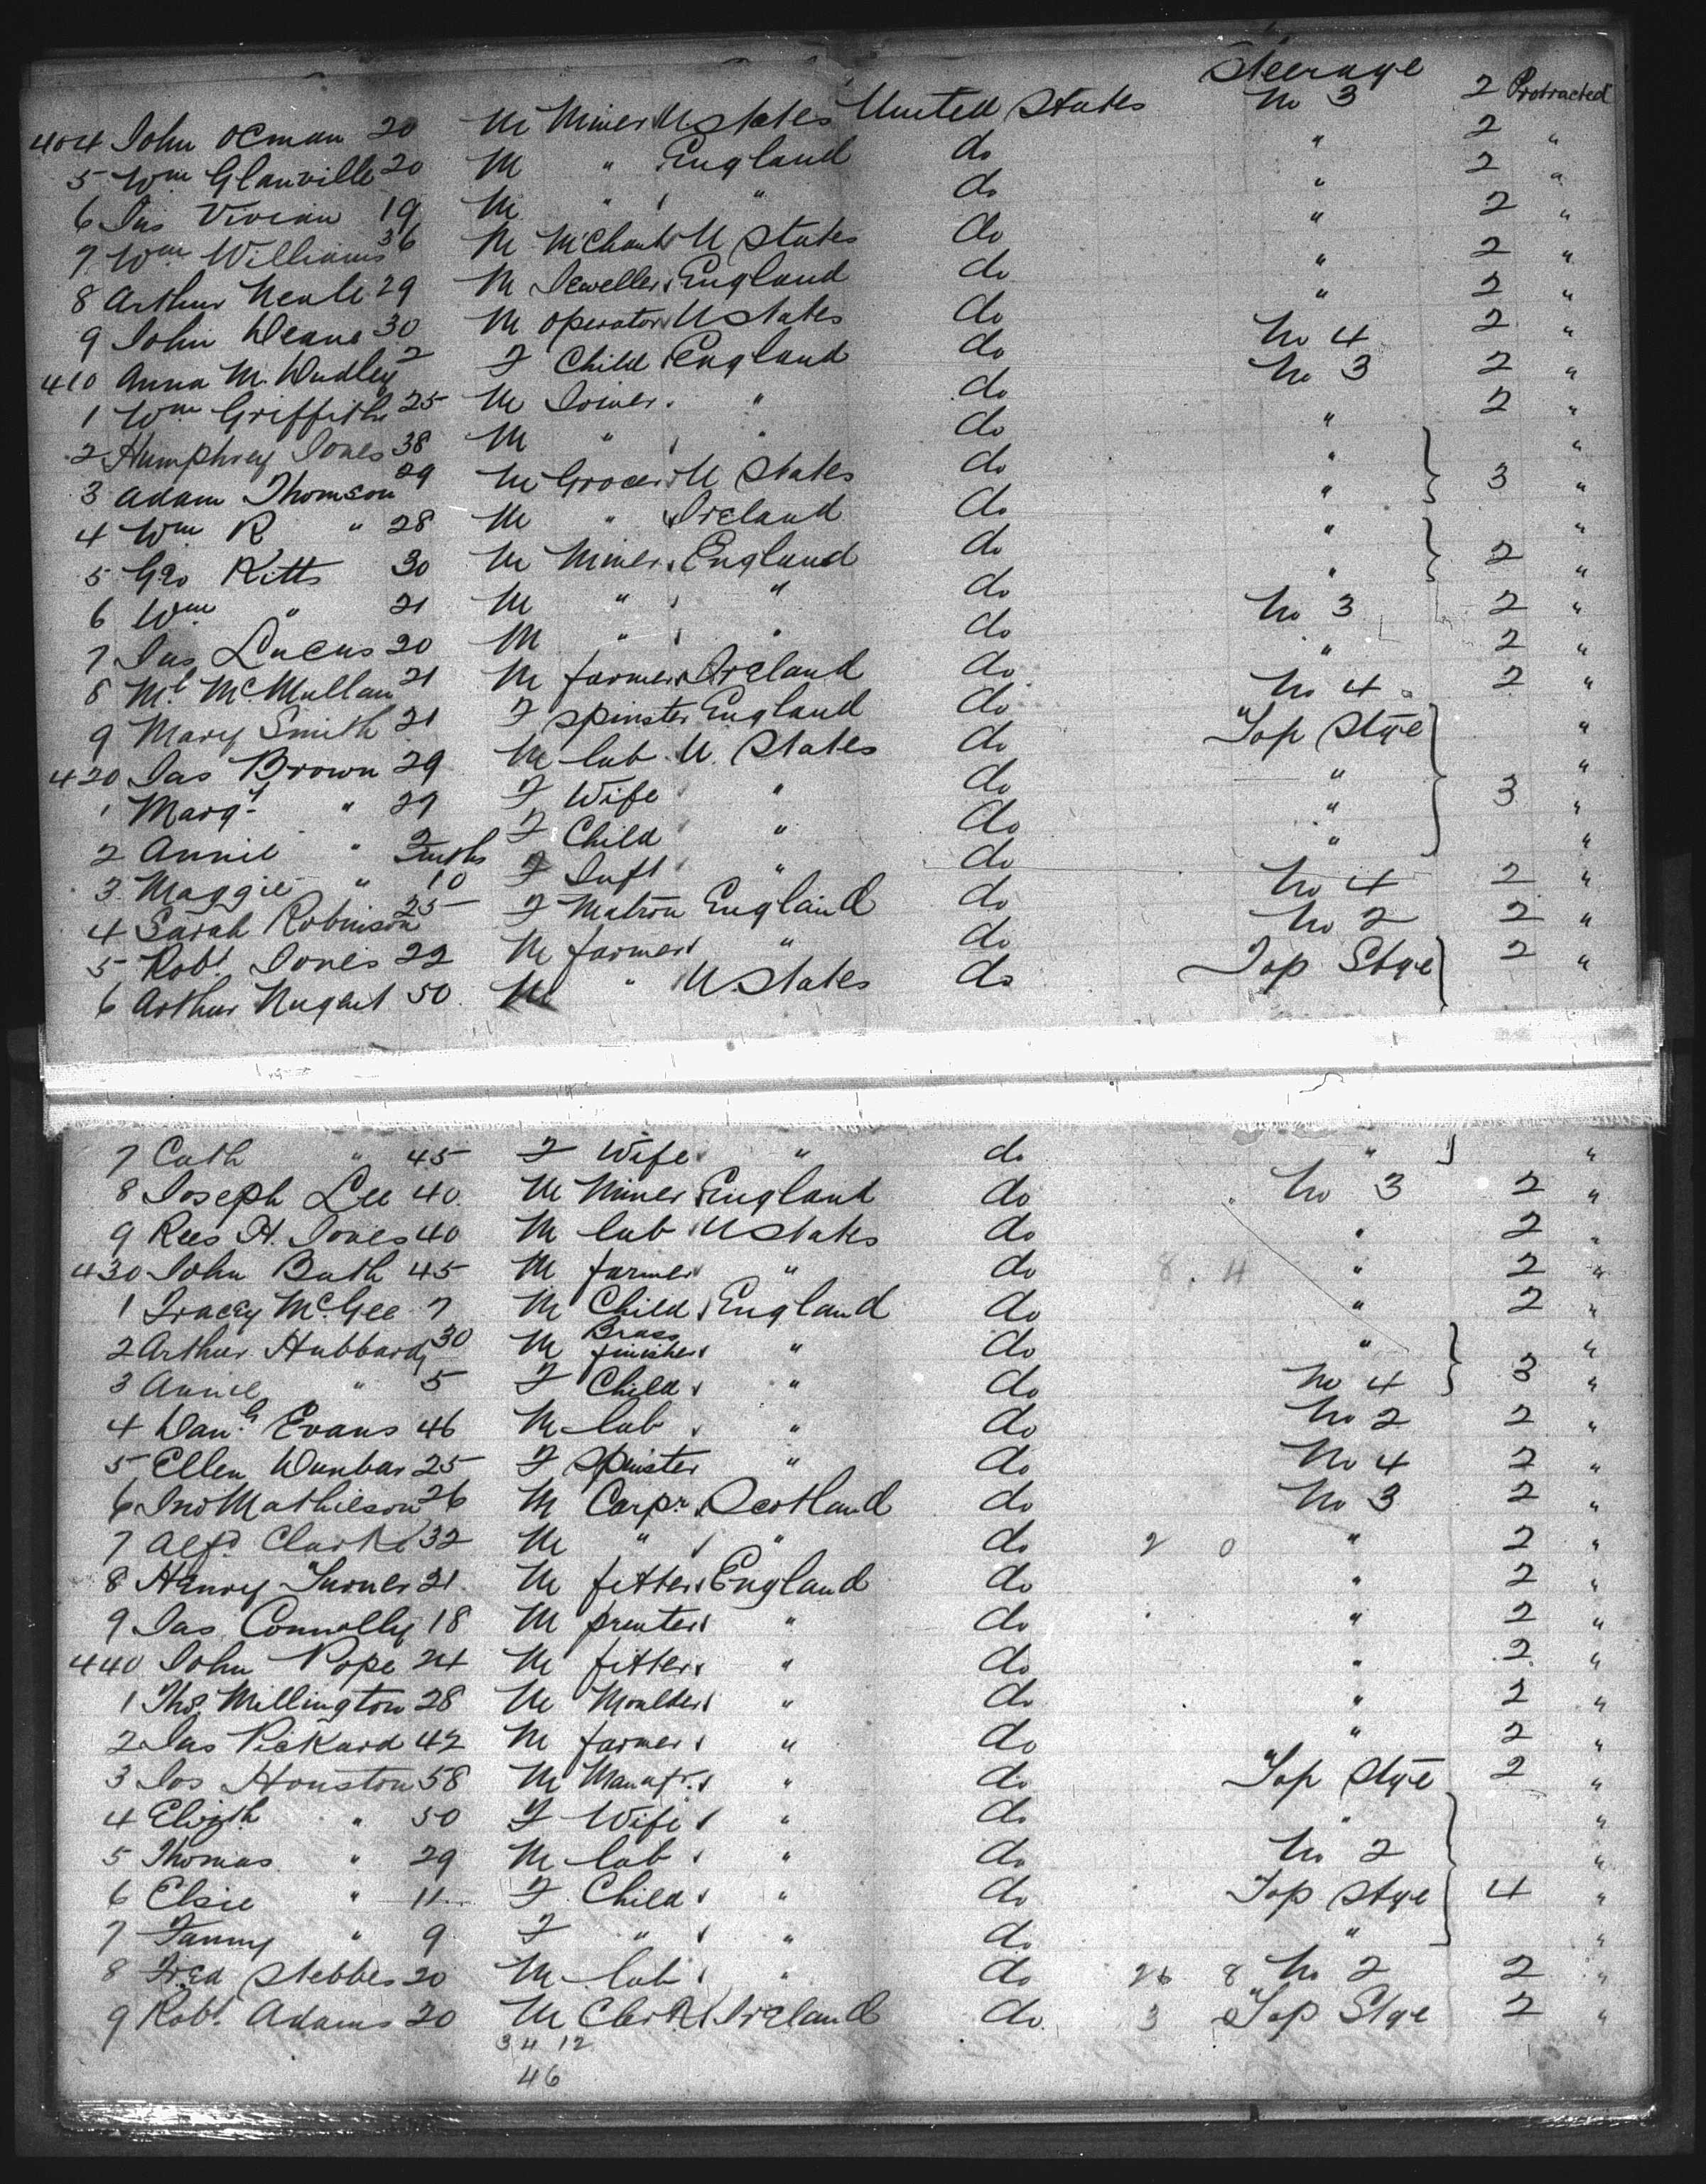 Steerage
404 John Ocman 20 M Miner U States United States No 3 2 Protracted
5 Wm Glanville 20 M " England do " 2 "
6 Jas Vivian 19 M " " do " 2 "
7 Wm Williams 36 M Mchant U States do " 2 "
8 Arthur Neale 29 M Jeweller England do " 2 "
9 John Deane 30 M Operator U States do " 2 "
410 Anna M. Dudley 2 F Child England do No 4 2 "
1 Wm Griffiths 25 M Joiner " do No 3 2 "
2 Humphrey Jones 38 M " " do " 2 "
3 Adam Thomson 29 M Grocer U States do " "
4 Wm R " 28 M " Ireland do " 3 "
5 Geo Kitts 30 M Miner England do " "
6 Wm " 21 M " " do " 2 "
7 Jas Lucus 20 M " " do No 3 2 "
8 Ml McMullan 21 M farmer Ireland do " 2 "
9 Mary Smith 21 F Spinster England do No 4 2 "
420 Jas Brown 29 M lab U. States do Top Stge "
1 Margt " 29 F Wife " do " "
2 Annie " 2 F Child " do " 3 "
3 Maggie " 10 mths F Inft " do " "
4 Sarah Robinson 25 F Matron England do No 4 2 "
5 Robt Jones 22 M farmer " do No 2 2 "
6 Arthur Nugent 50 M " U States do Top Stge 2 "
7 Cath " 45 F Wife " do " "
8 Joseph Lee 40 M Miner England do No 3 2 "
9 Rees H. Jones 40 M lab U States do " 2 "
430 John Bath 45 M farmer " do 8. 4 " 2 "
1 Tracey McGee 7 M Child England do " 2 "
2 Arthur Hubbard 30 M Brass finisher " do " "
3 Annie " 5 F Child " do No 4 3 "
4 Danl Evans 46 M lab " do No 2 2 "
5 Ellen Dunbar 25 F Spinster " do No 4 2 "
6 Jno Mathieson 26 M Carpr Scotland do No 3 2 "
7 Alfd Clarke 32 M " " do 2 0 " 2 "
8 Henry Turner 21 M fitter England do " 2 "
9 Jas Connolly 18 M printer " do " 2 "
440 John Pope 24 M fitter " do " 2 "
1 Thos Millington 28 M Moulder " do " 2 "
2 Jas Pickard 42 M farmer " do " 2 "
3 Jos Houston 58 M Manafr. " do Top Stge 2 "
4 Elizth " 50 F Wife " do " "
5 Thomas " 29 M lab " do No 2 "
6 Elsie " 11 F Child " do Top Stge 4 "
7 Fanny " 9 F " " do " "
8 Fred Stebbes 20 M lab " do 26 8 No 2 2 "
9 Robt Adams 20 M Clerk Ireland do 3 Top Stge 2 "
34 12
46